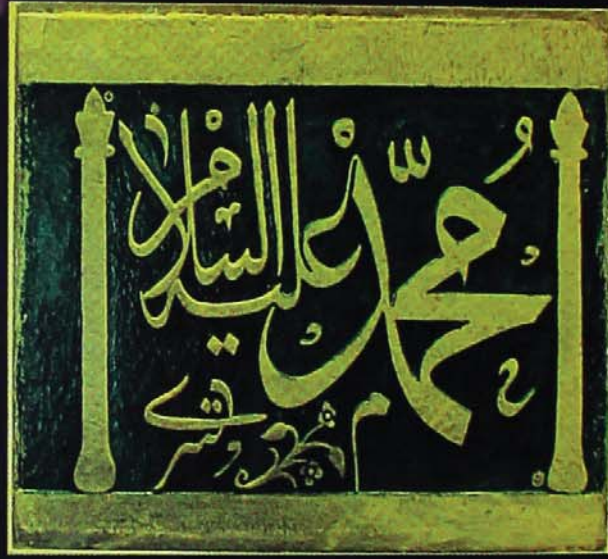 محمّد عليه السلام